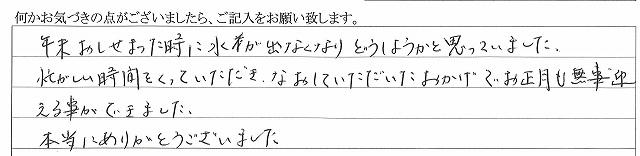 何かお気づきの点がございましたら、ご記入をお願い致します。
年末おしせまった時に水道が出なくなりどうしようかと思っていました。
忙がしい時間をくっていただき、なおしていただいたおかげでお正月も無事迎
える事ができました。
本当にありがとうございました